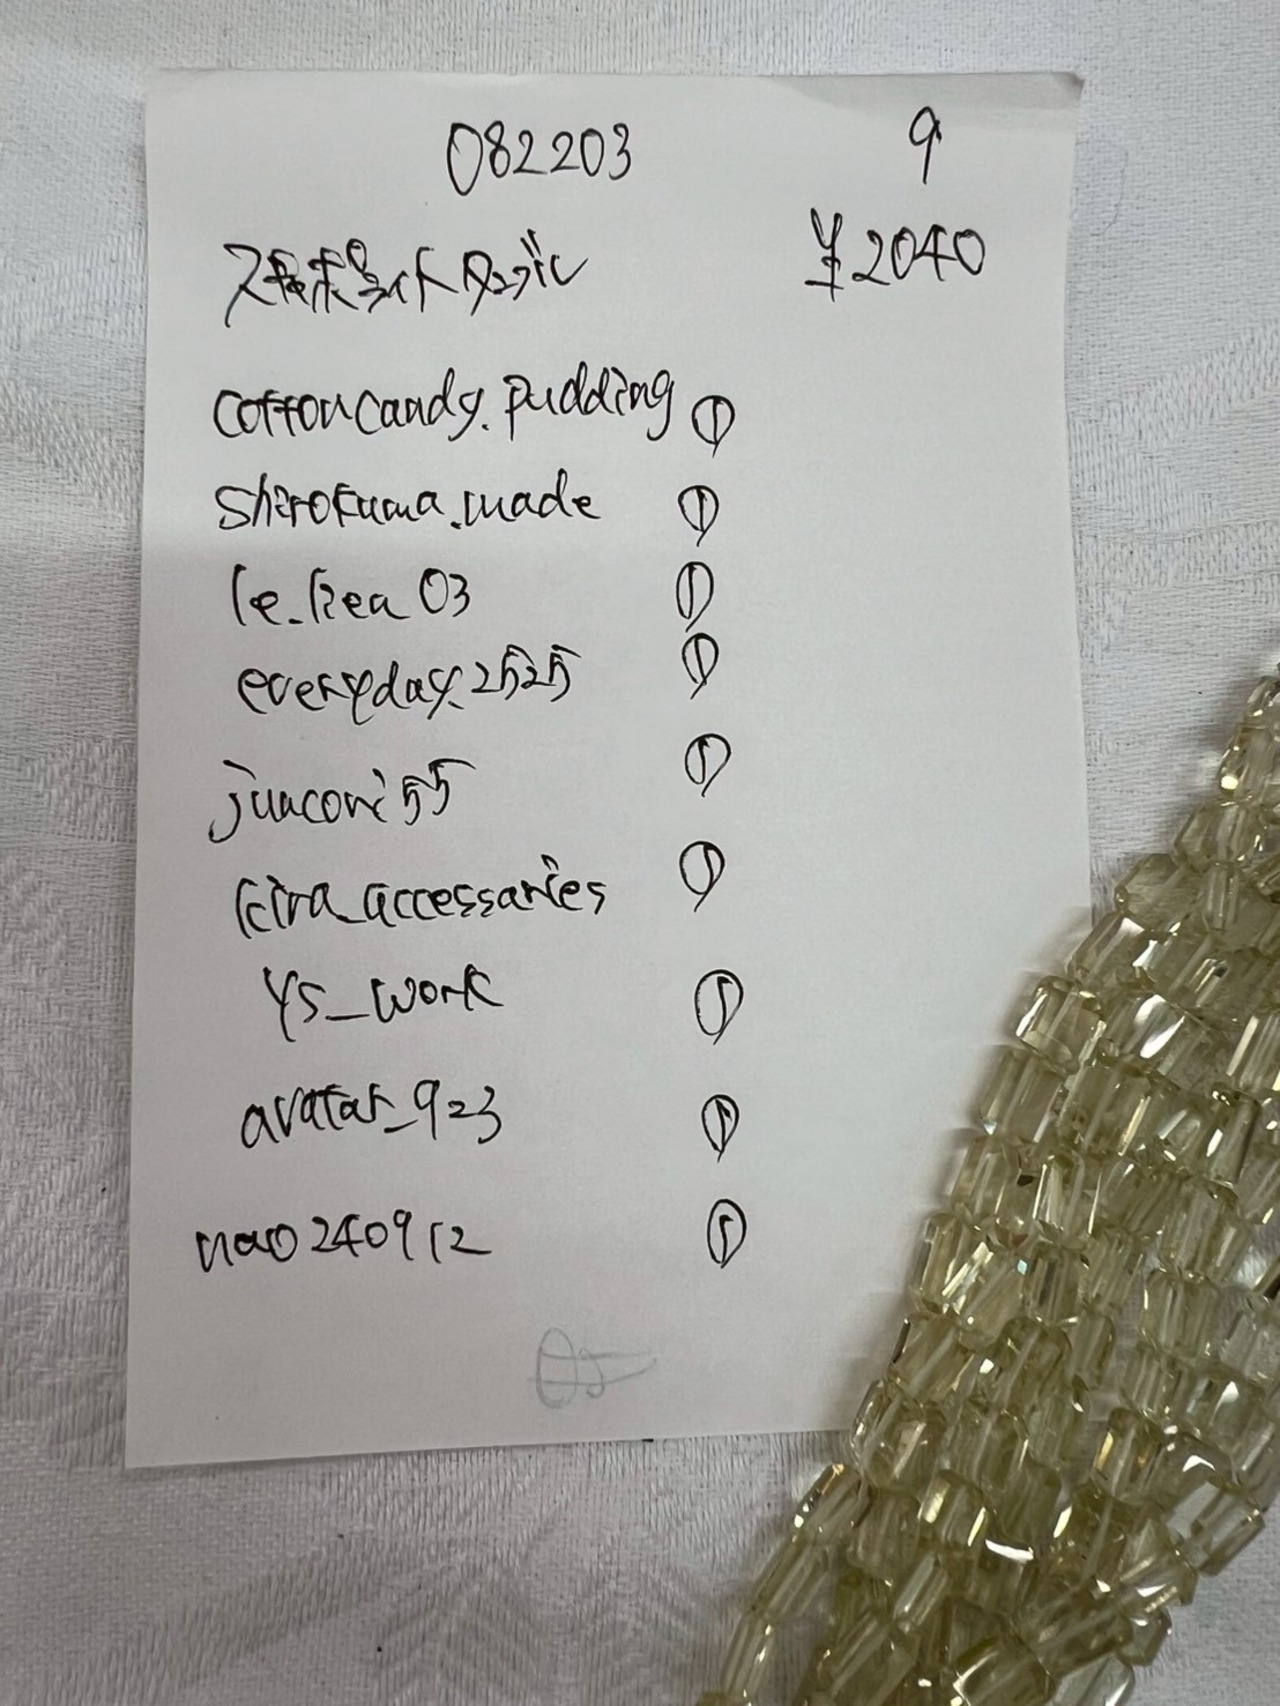 082203 9
¥2040
cottoncandy.pudding ①
shirokuma.made ①
le_kea03 ①
everyday.2525 ①
juncori55 ①
kira_accessaries ①
ys_work ①
avatar_923 ①
nao240912 ①